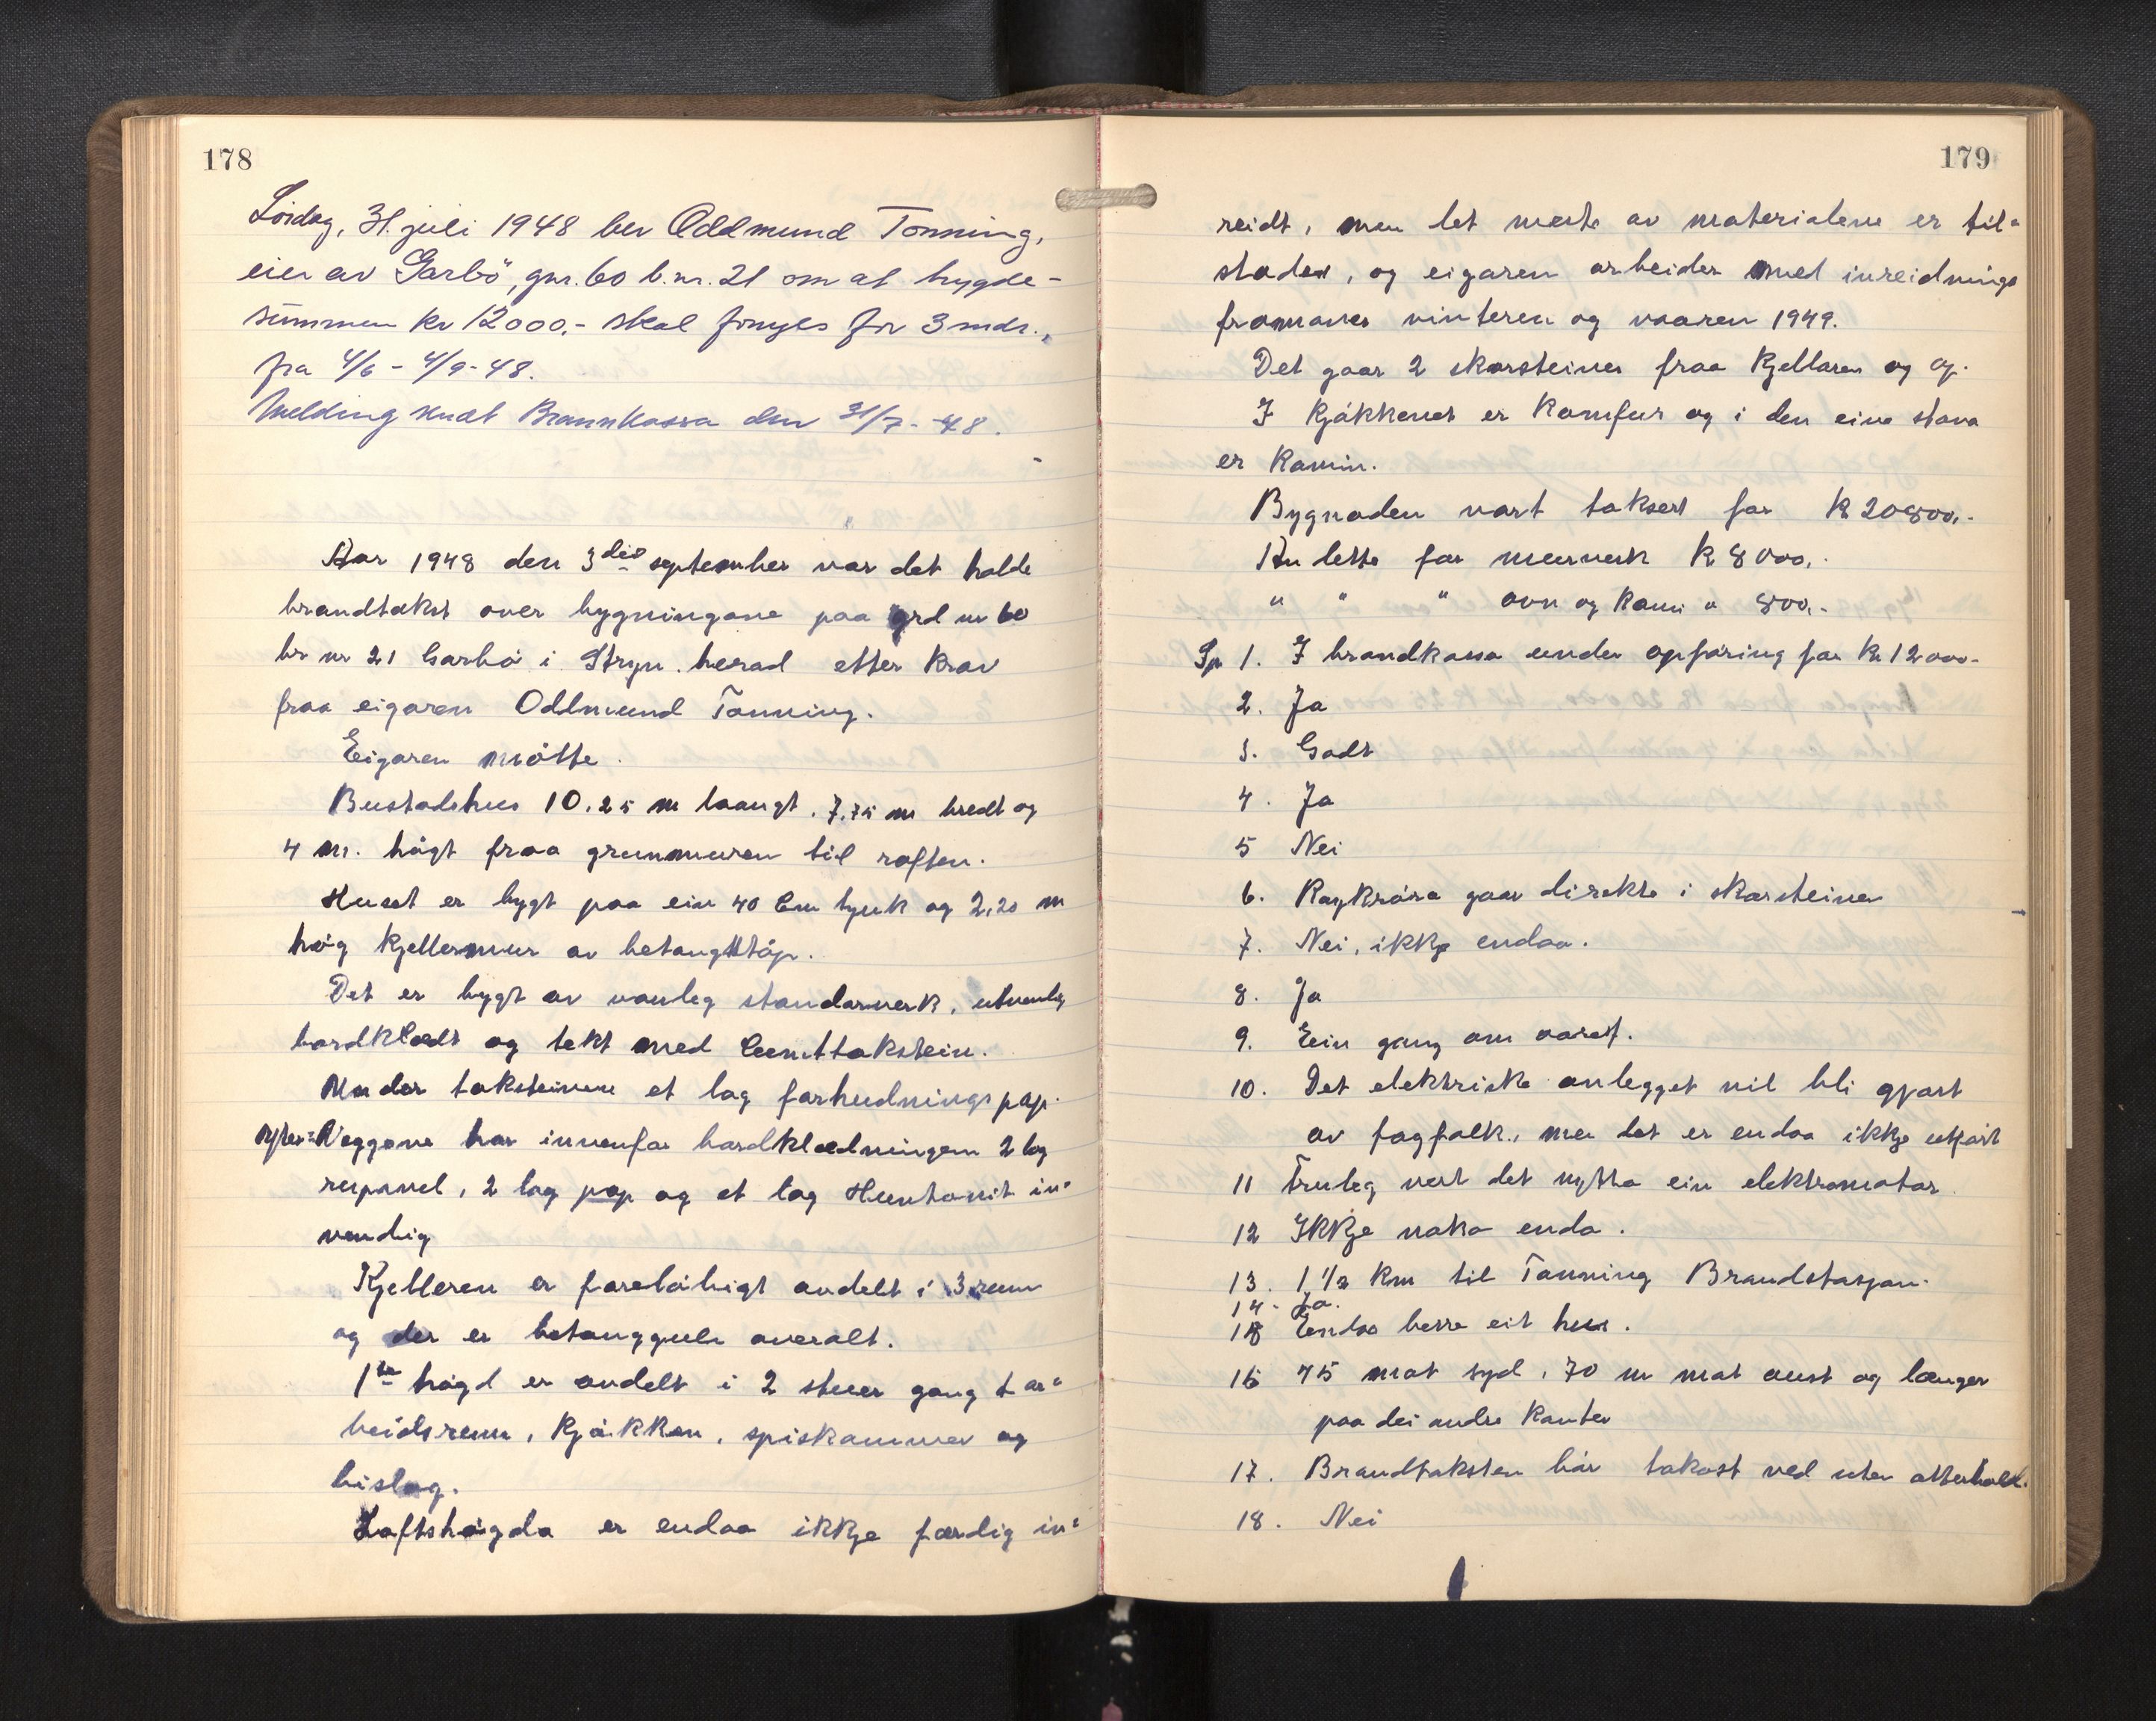 178
Loidag, 31. juli 1948 ber Oddmund Tonning,
eier av Garbö, gnr. 60 b.nr. 21 om at bygde-
summen kr 12000,- skal fornyes for 3 mdr.,
fra 4/6 - 4/9-48.
Melding sendt Brannkassa den 31/7--48.
Aar 1948 den 3die september var det holde
brandtakst over bygningane paa grd nr 60
br nr 21 Garbö i Stryn herad etter krav
fraa eigaren Oddmund Tonning.
Eigaren mötte.
Bustadshus 10.25 m laangt, 7.75 m bredt og
4 m. högt fraa grunnmuren til raften.
Huset er bygt paa ein 40 Cm tjuk og 2,20 m
hög kjellermur av betongstöp.
Det er bygt av vanleg standarverk, utvendig
bordklædt og tekt med Cemttakstein.
Under taksteinene et lag forhudningspap.
Ytter=Veggene har innenfor bordklædningen 2 lag
rupanel, 2 lag pap og et lag Huntonit in=
vendig
Kjelleren er forelöbigt avdelt i 3 rum
og der er betonggulv overalt.
1ste högd er avdelt i 2 stuer gang t ar=
beidsrum, Kjökken, spiskammer og
bislag.
Loftshögda er endaa ikkje færdig in=
179
reidt, men det meste av materialene er til=
stades, og eigaren arbeider med inreidnings
fromover vinteren og vaaren 1949.
Det gaar 2 skorsteiner fraa Kjellaren og op.
I Kjökkenet er Komfur og i den eine stova
er Kamin.
Bygnaden vart taksert for Kr 20800,-
Av dette for murverk Kr 8000,-
" " " ovn og Kami " 800,-
Sp 1. I brandkassa under opföring for Kr 12000-
2. Ja
3. Godt
4. Ja
5 Nei
6. Röykröra gaar direkte i skorsteinen
7. Nei, ikkje endaa.
8. Ja
9. Ein gang om aaret.
10. Det elektriske anlegget vil bli gjort
av fagfolk, men det er endaa ikkje utfört
11 Truleg vert det nytta ein elektromotor
12 Ikkje noko enda.
13. 1 1/2 Km til Tonning Brandstasjon.
14. Ja.
15 Endaa berre eit hus.
16 45 mot syd, 70 m mot aust og længer
paa dei andre Kanter
17. Brandtaksten bör takast ved uten atterhold.
18. Nei